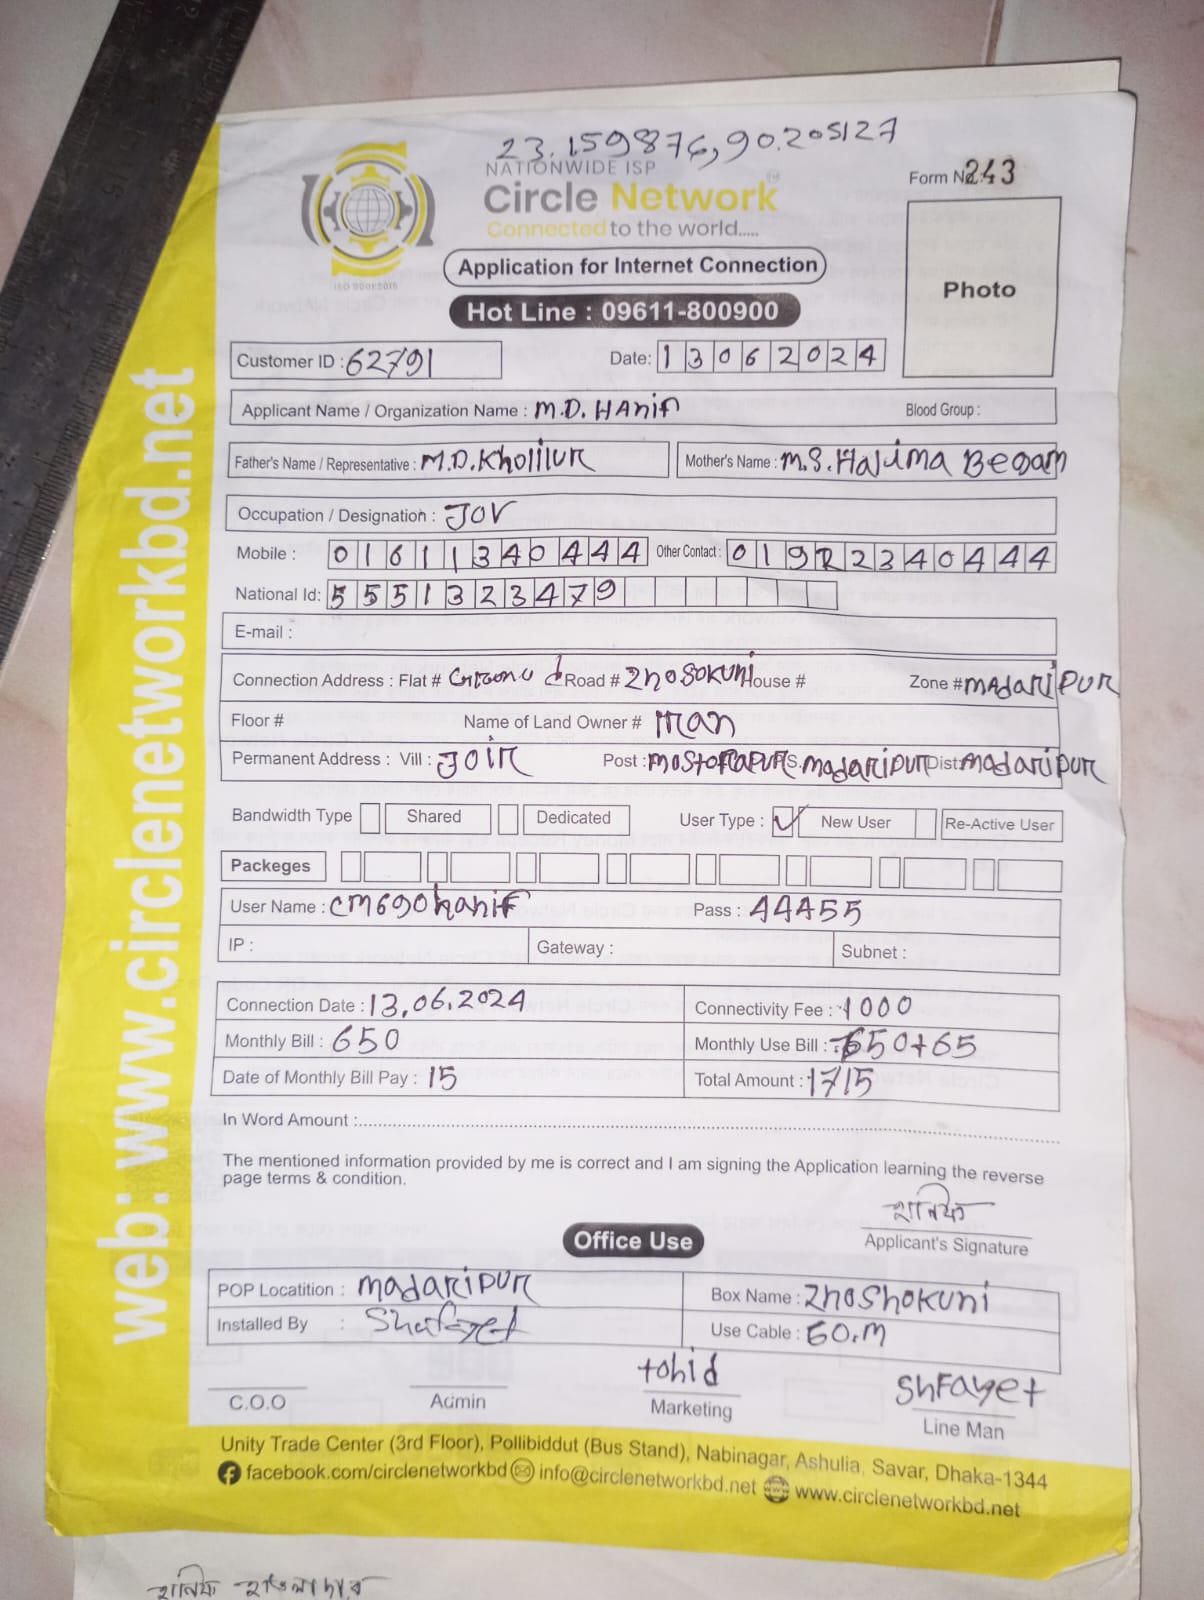 23.159876,90.205127
NATIONWIDE ISP
Circle Network
Connected to the world.....
ISO 9001:2015
Form No 243
Photo
Application for Internet Connection
Hot Line : 09611-800900
Customer ID : 62791 Date: 13062024
Applicant Name / Organization Name : M.D. HAnif Blood Group :
Father's Name / Representative : M.D. Kholilur Mother's Name : M.S. Halima Begam
Occupation / Designation : JOV
Mobile : 01611340444 Other Contact : 01922340444
National Id: 5551323479
E-mail :
Connection Address : Flat # Road # 2noSokuni House # Zone # MAdaripur
Floor # Name of Land Owner # Iran
Permanent Address : Vill : JOir Post : mostofapur P.S. madaripur Dist: madaripur
Bandwidth Type Shared Dedicated User Type : ✓ New User Re-Active User
Packeges
User Name : cm690hanif Pass : 44455
IP : Gateway : Subnet :
Connection Date : 13.06.2024 Connectivity Fee : 1000
Monthly Bill : 650 Monthly Use Bill : 650+65
Date of Monthly Bill Pay : 15 Total Amount : 1715
In Word Amount :
The mentioned information provided by me is correct and I am signing the Application learning the reverse
page terms & condition.
হানিফ
Applicant's Signature
Office Use
POP Locatition : madaripur Box Name : 2noShokuni
Installed By : Shafayet Use Cable : 60.M
tohid Shfayet
C.O.O Admin Marketing Line Man
Unity Trade Center (3rd Floor), Pollibiddut (Bus Stand), Nabinagar, Ashulia, Savar, Dhaka-1344
facebook.com/circlenetworkbd info@circlenetworkbd.net www.circlenetworkbd.net
web: www.circlenetworkbd.net
হানিফ হাওলাদার